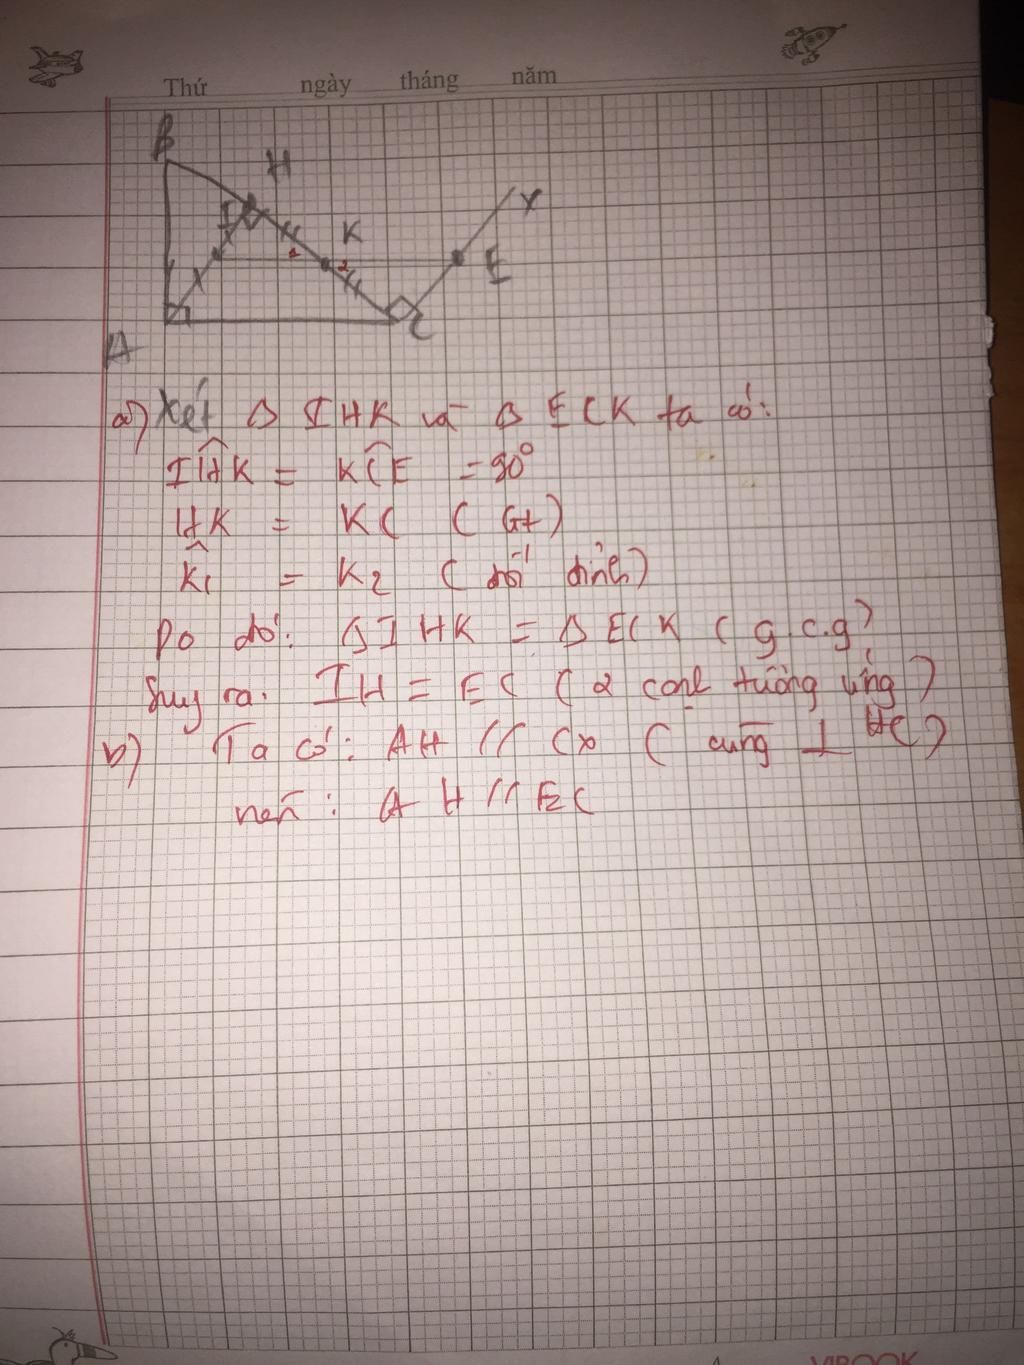 Thứ ngày tháng năm
B
H
I
K
x
1
2
E
A
C
a) Xét Δ IHK và Δ ECK ta có:
IĤK = KĈE = 90°
HK = KC ( Gt )
K̂1 = K2 ( đối đỉnh )
Do đó: ΔIHK = Δ ECK ( g.c.g )
Suy ra: IH = EC ( 2 cạnh tương ứng )
b) Ta có: AH // Cx ( cùng ⊥ HC )
nên : AH // EC
VIBOOK